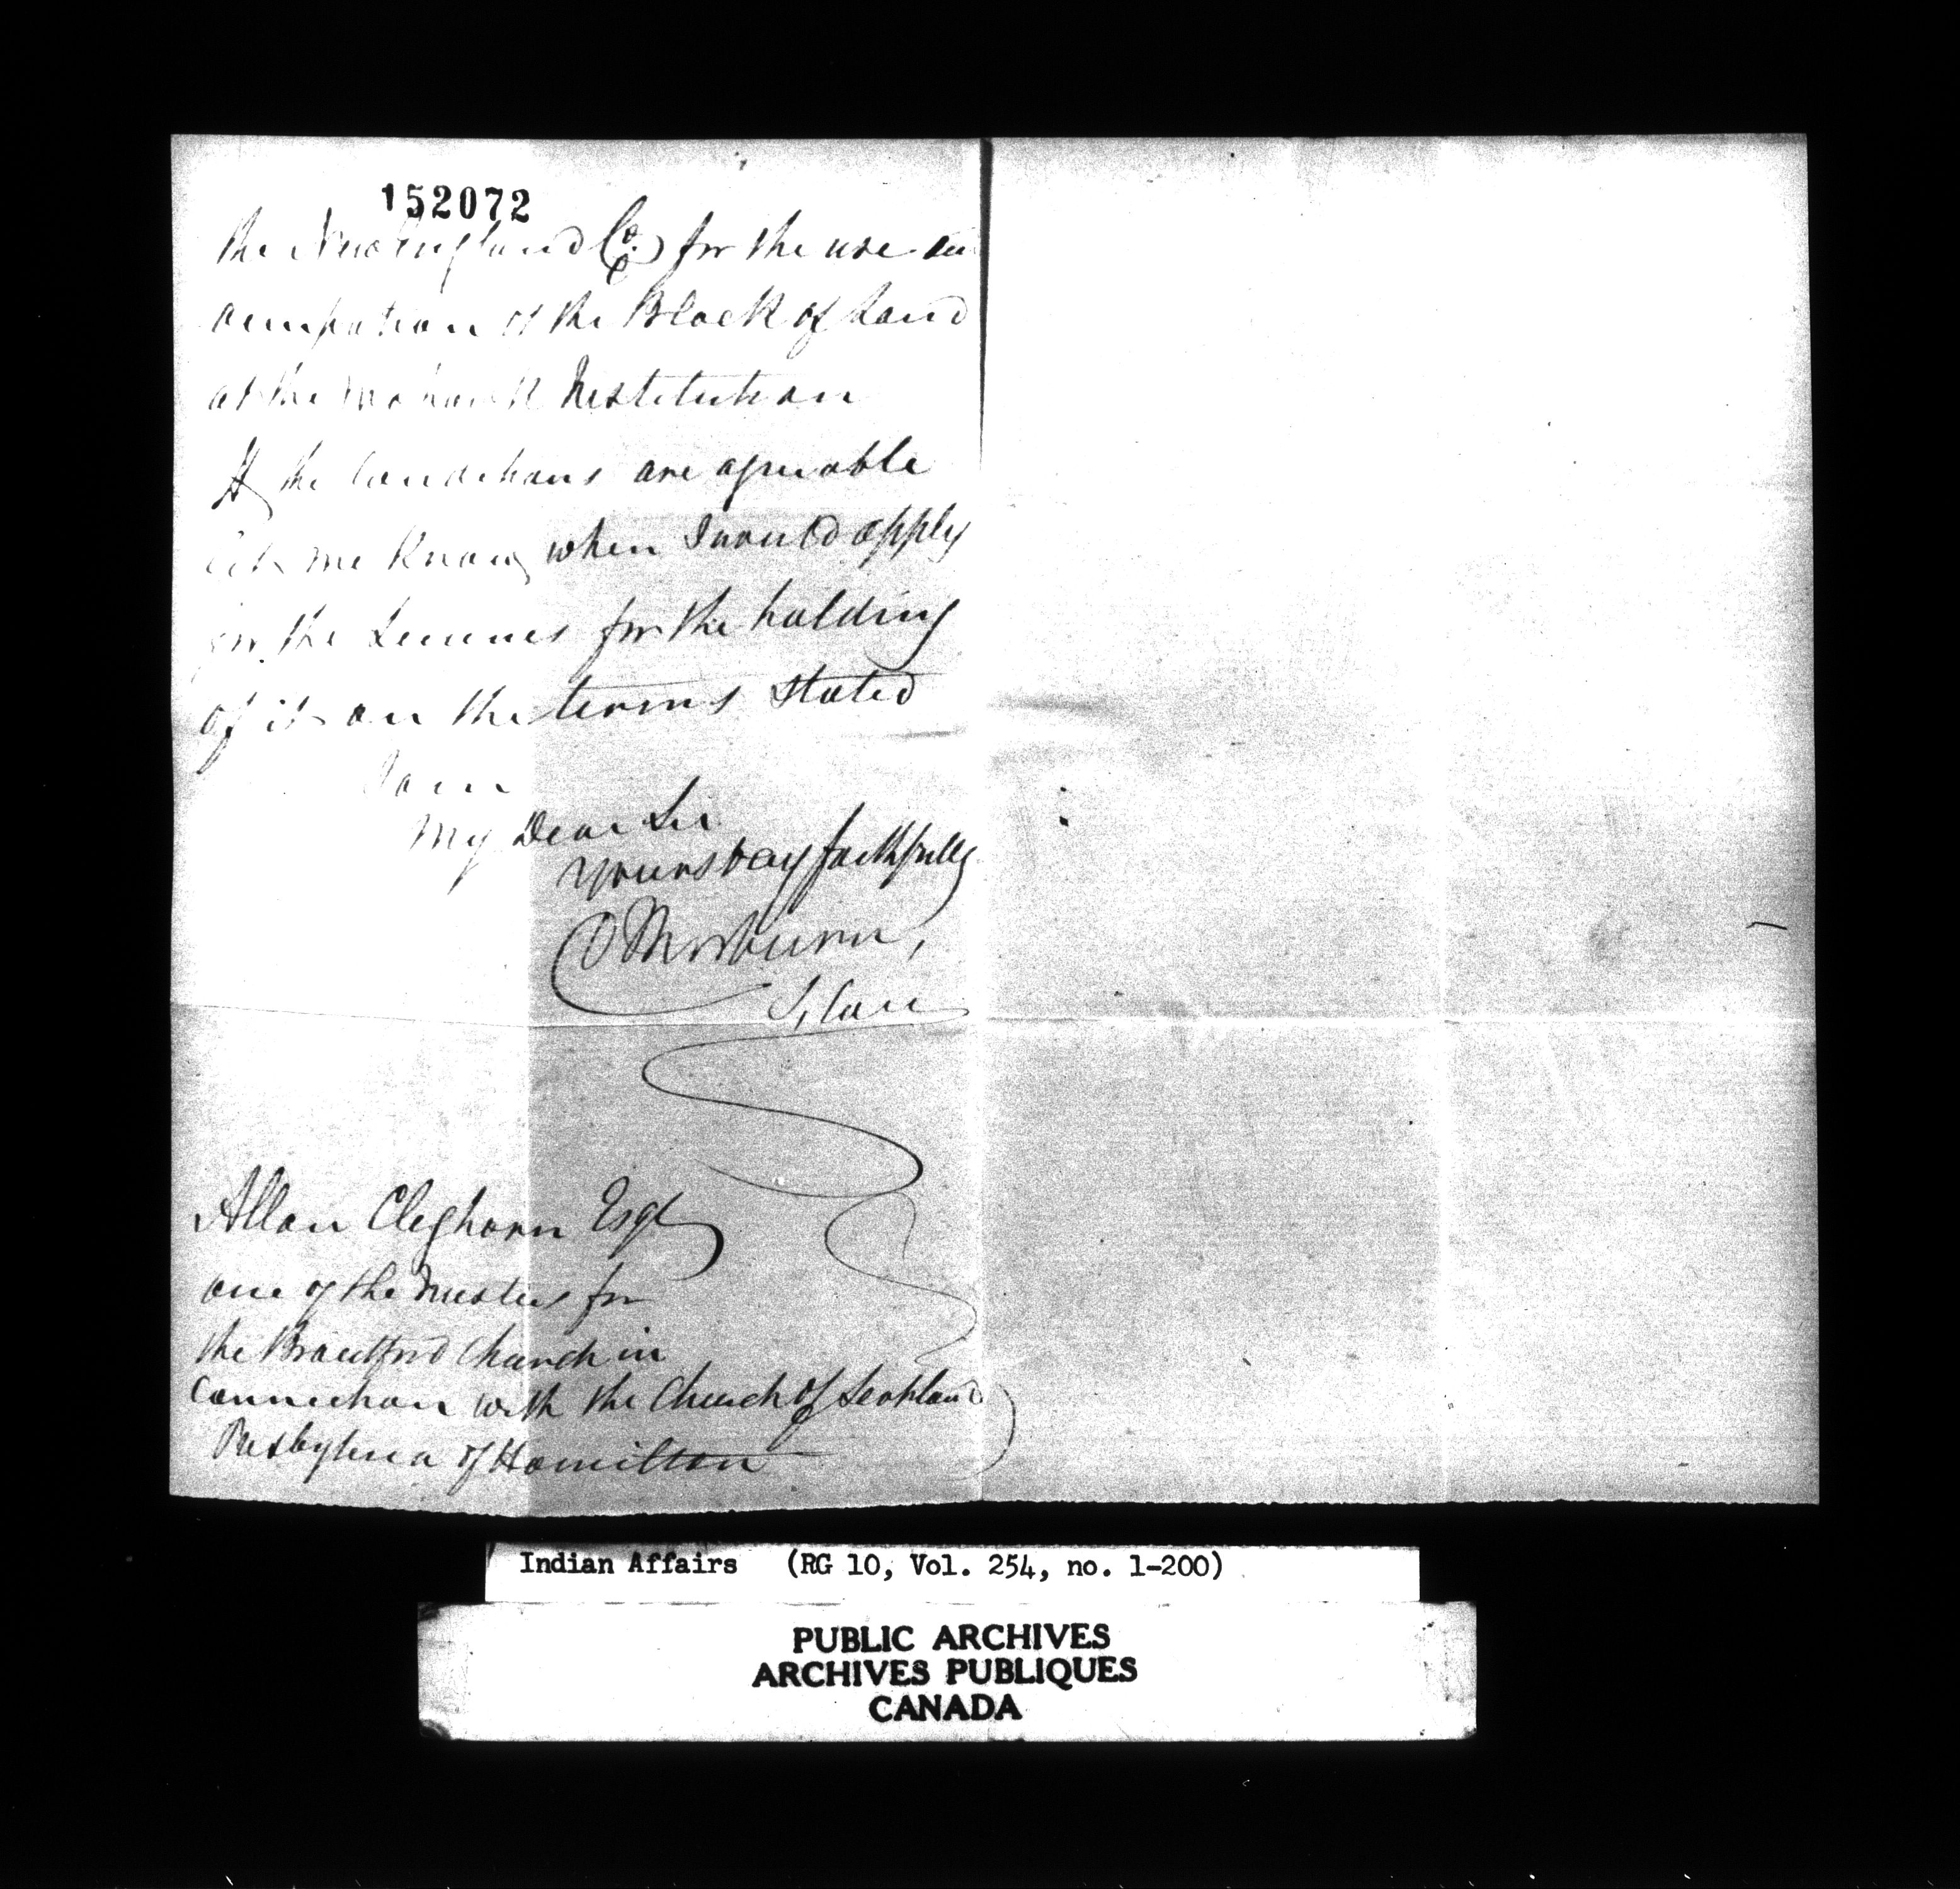 152072
the New England Co. for the use an
occupation of the Block of Land
at the Mohawk Institution
If the Conditions are agreeable
let me know when I would apply
for the License for the holding
of it on the terms stated
I am
My Dear Sir
yours very faithfully
D Thorburn,
S, Com
Allan Cleghorn Esqr
one of the Trustees for
the Brantford Church in
Connection with the Church of Scotland
Presbyteria of Hamilton
Indian Affairs (RG 10, Vol. 254, no. 1-200)
PUBLIC ARCHIVES
ARCHIVES PUBLIQUES
CANADA